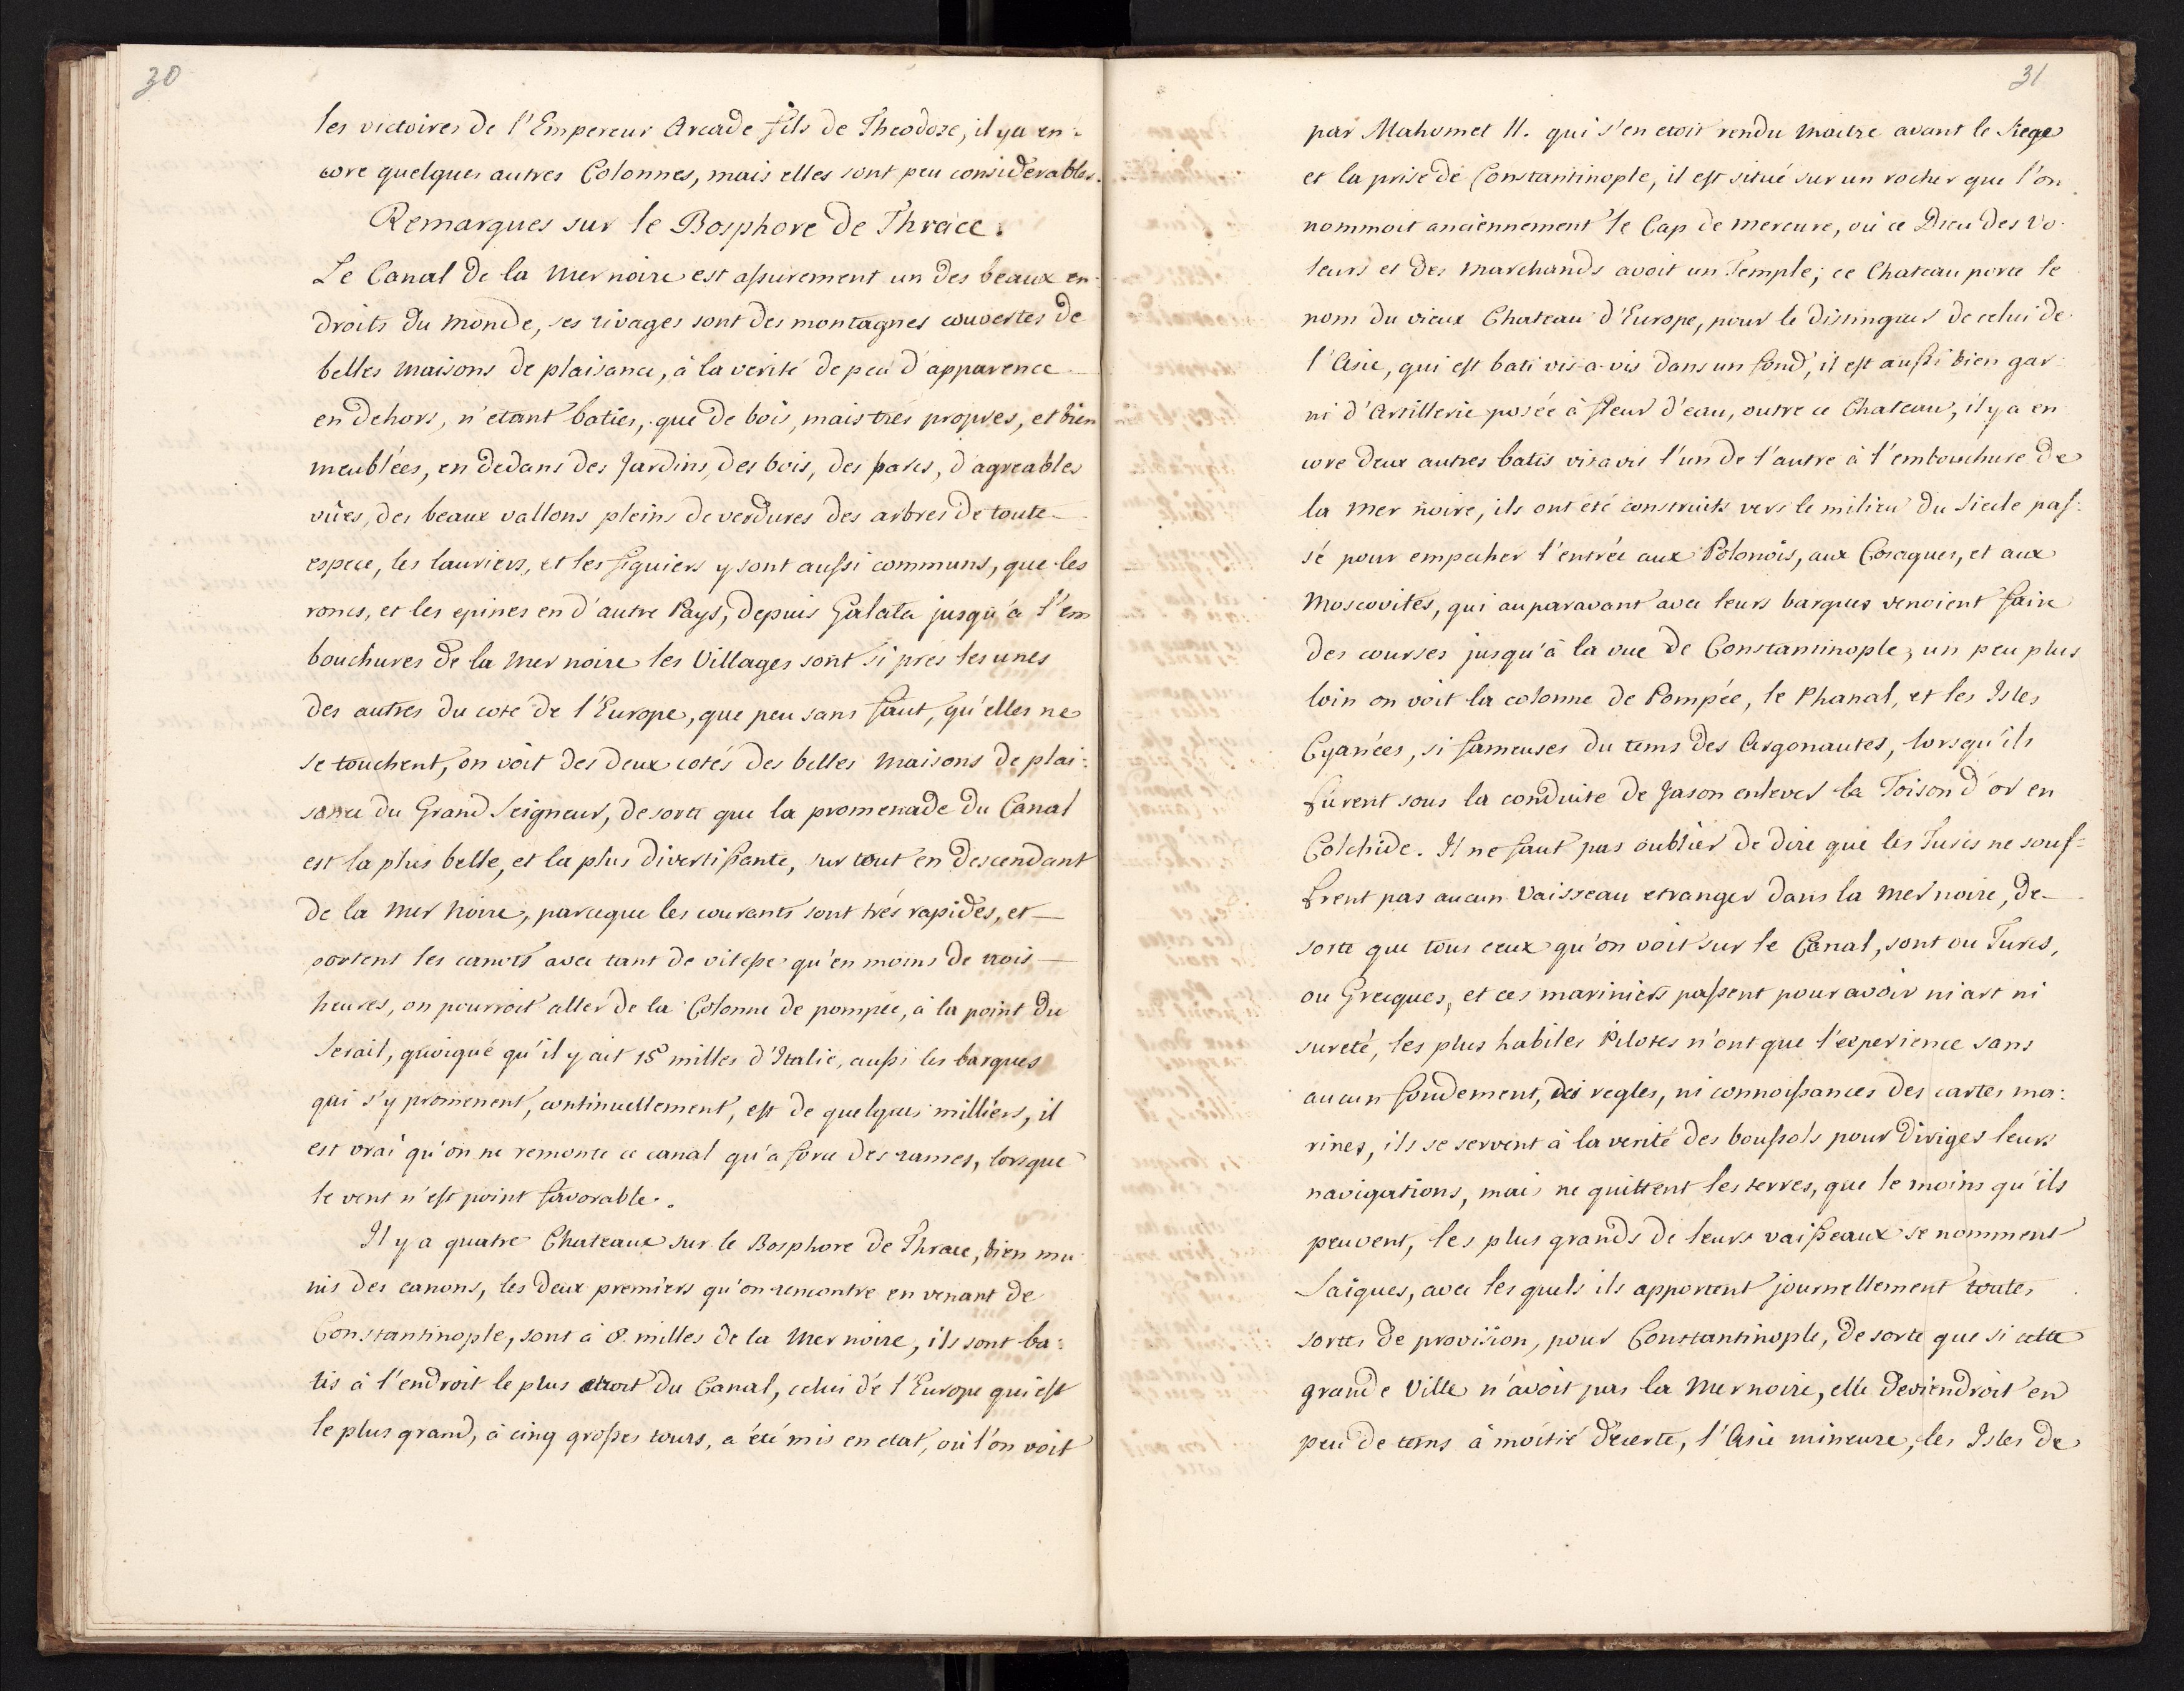 30
les victoires de l'Empereur Arcade fils de Theodose, il y a en:
core quelques autres Colonnes, mais elles sont peu considerables.
Remarques sur le Bosphore de Thrace.
Le Canal de la Mer noire est assurement un des beaux en-
droits du monde, ses rivages sont des montagnes couvertes de
belles maisons de plaisance, à la verité de peu d'apparence
en dehors, n'etant baties, que de bois, mais trés propres, et bien
meublées, en dedans des Jardins, des bois, des parcs, d'agreables
vües, des beaux vallons pleins de verdures des arbres de toute
espece, les lauriers, et les figuiers y sont aussi communs, que les
ronces, et les epines en d'autre Pays, depuis Galata jusqu'à l'em
bouchures de la Mer noire les Villages sont si prés les unes
des autres du coté de l'Europe, que peu sans faut, qu'elles ne
se touchent, on voit des deux cotés des belles Maisons de plai:
sance du Grand Seigneur, de sorte que la promenade du Canal
est la plus belle, et la plus divertissante, sur tout en descendant
de la Mer Noire, parceque les courants sont trés rapides, et
portent les canots avec tant de vitesse qu'en moins de trois
heures, on pourroit aller de la Colonne de pompée, à la point du
Serail, quoique qu'il y ait 15 milles d'Italie, aussi les barques
qui s'y promenent, continuellement, est de quelques milliers, il
est vrai qu'on ne remonte ce canal qu'a force des rames, lorsque
le vent n'est point favorable.
Il y a quatre Chateaux sur le Bosphore de Thrace, bien mu
nis des canons, les deux premiers qu'on rencontre en venant de
Constantinople, sont à 8. milles de la Mer noire, ils sont ba:
tis à l'endroit le plus etroit du Canal, celui de l'Europe qui est
le plus grand, à cinq grosses tours, a été mis en etat, où l'on voit
31
par Mahomet II. qui s'en etoit rendu maitre avant le Siege
et la prise de Constantinople, il est situé sur un rocher que l'on
nommoit anciennement le Cap de mercure, où ce Dieu des Vo-
leurs et des Marchands avoit un Temple; ce Chateau porte le
nom du vieux Chateau d'Europe, pour le distinguer de celui de
l'Asie, qui est bati vis-a-vis dans un fond, il est aussi bien gar-
ni d'Artillerie posée à fleur d'eau, outre ce Chateau, il y a en
core deux autres batis vis a vis l'un de l'autre à l'embouchure de
la Mer noire, ils ont été construits vers le milieu du Siecle pas:
sé pour empecher l'entrée aux Polonois, aux Cosaques, et aux
Moscovites, qui auparavant avec leurs barques venoient faire
des courses jusqu'à la vue de Constantinople, un peu plus
loin on voit la colonne de Pompée, le Phanal, et les Isles
Cyanées, si fameuses du tems des Argonautes, lorsqu'ils
furent sous la conduite de Jason enlever la Toison d'or en
Colchide. Il ne faut pas oublier de dire que les Turcs ne souf-
frent pas aucun Vaisseau etranger dans la Mer noire, de
sorte que tous ceux qu'on voit sur le Canal, sont ou Turcs,
ou Grecques, et ces mariniers passent pour avoir ni art ni
sureté, les plus habiles Pilotes n'ont que l'experience sans
aucun fondement, des regles, ni connoissances des cartes ma:
rines, ils se servent à la verité des boussols pour diriger leurs
navigations, mais ne quittent les terres, que le moins qu'ils
peuvent, les plus grands de leurs vaisseaux se nomment
Saïques, avec les quels ils apportent journellement toutes
sortes de provision, pour Constantinople, de sorte que si cette
grande Ville n'avoit pas la Mer noire, elle deviendroit en
peu de tems à moitié deserte, l'Asie mineure, les Isles de